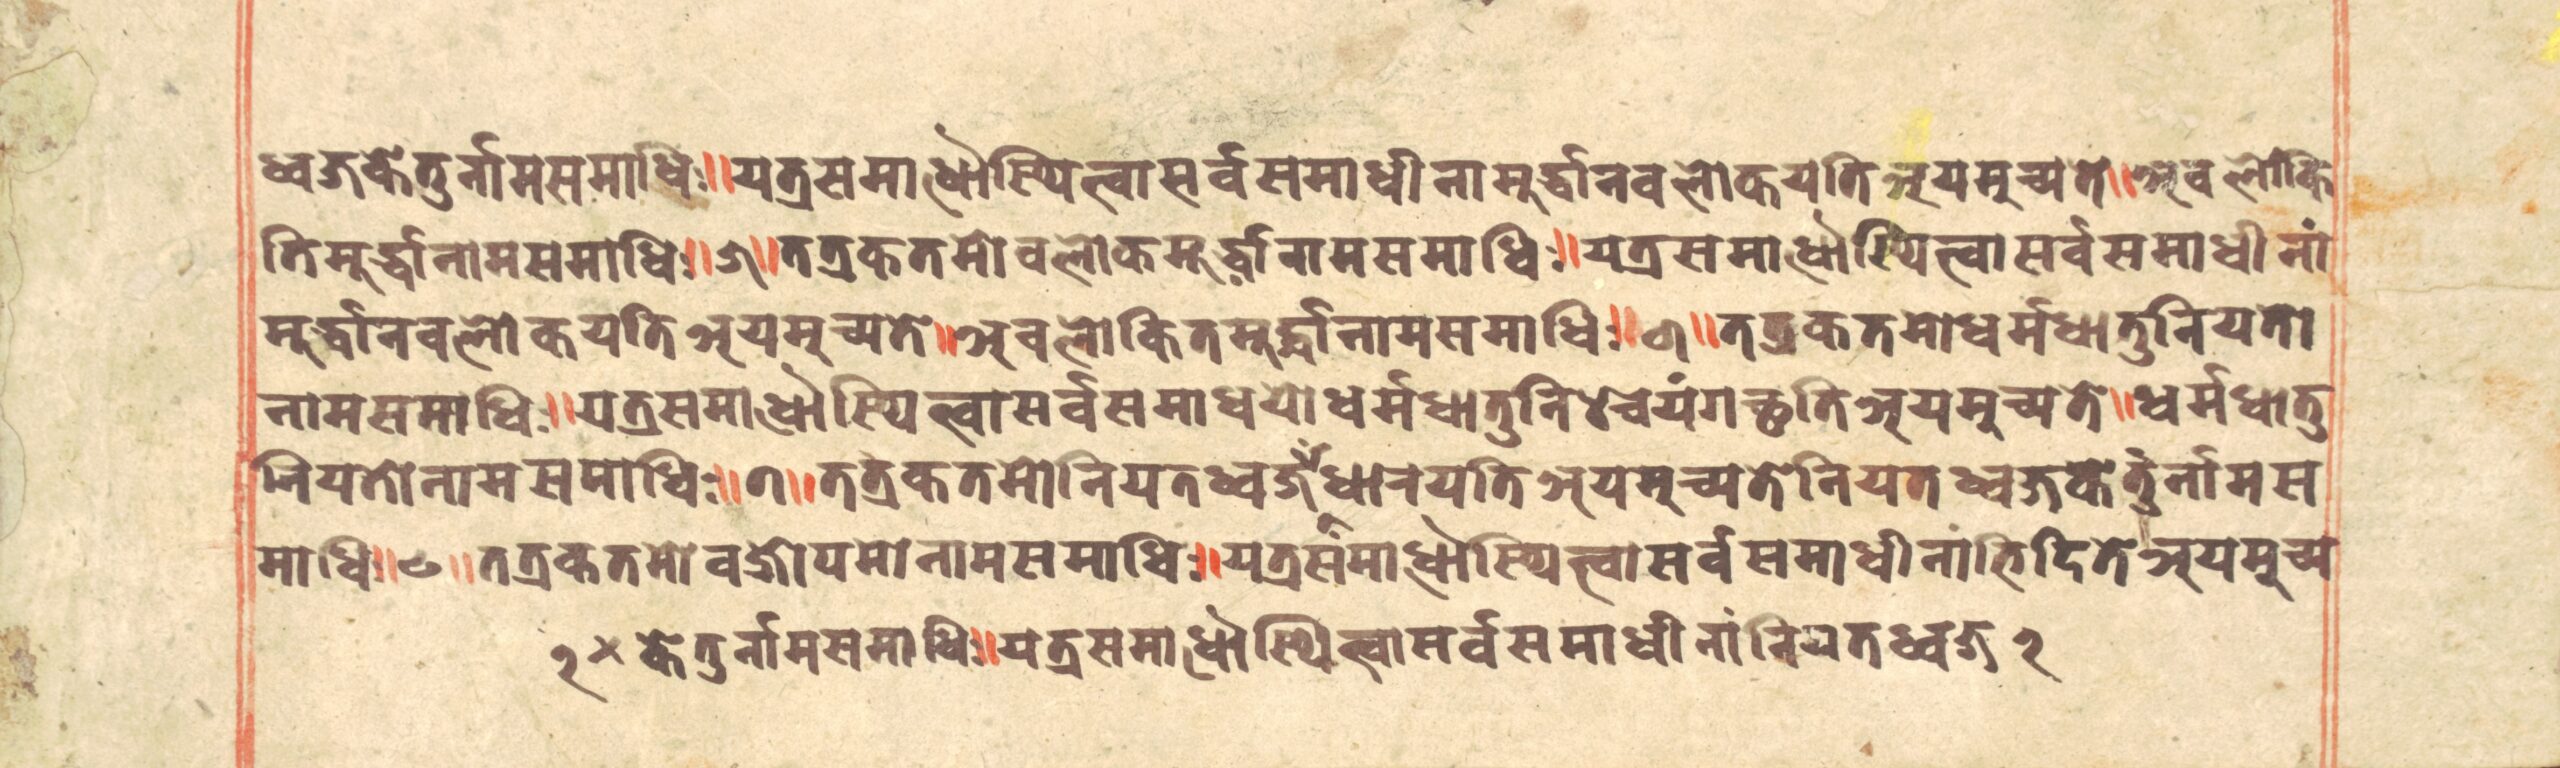 ध्वजकेतुर्नामसमाधिः॥यत्रसमाधौस्थित्वासर्वसमाधीनामुर्द्धानवलोकयतिअयमुच्यते॥अवलोकि
तिमुर्द्धानामसमाधिः॥७॥तत्रकतमोवलोकमुर्द्धानामसमाधिः॥यत्रसमाधौस्थित्वासर्वसमाधीनां
मुर्द्धानवलोकयतिअयमुच्यते॥अवलोकितमुर्द्धानामसमाधिः॥७॥तत्रकतमोधर्मधातुनियतो
नामसमाधिः॥यत्रसमाधौस्थित्वासर्वसमाधयोधर्मधातुनिश्चयंगच्छतिअयमुच्यते॥धर्मधातु
नियतोनामसमाधिः॥८॥तत्रकतमोनियतध्वजँधारयतिअयमुच्यतेनियतध्वजकेतुंर्नामस
माधिः॥९॥तत्रकतमोवज्रोपमोनामसमाधिः॥यत्रसमाधौस्थित्वासर्वसमाधीनांहिदितेअयमुच्य
२×केतुर्नामसमाधिः॥यत्रसमाधौस्थित्वासर्वसमाधीनांनियतध्वज२